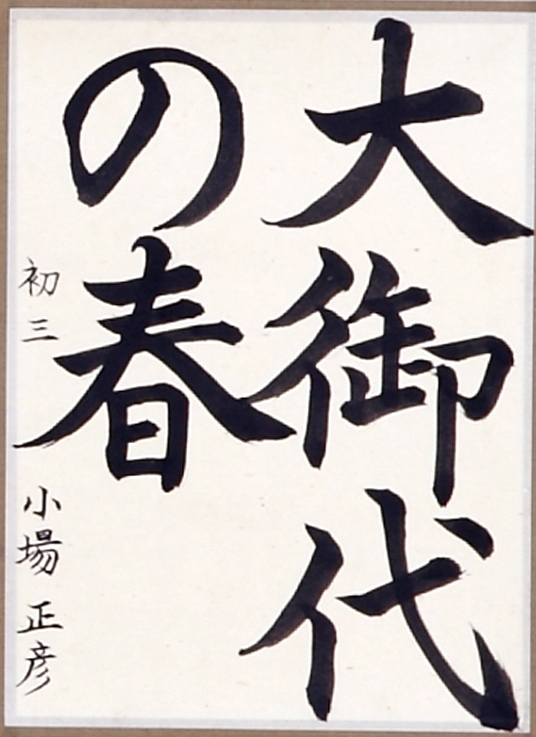 大御代
の春
初三 小場正彦